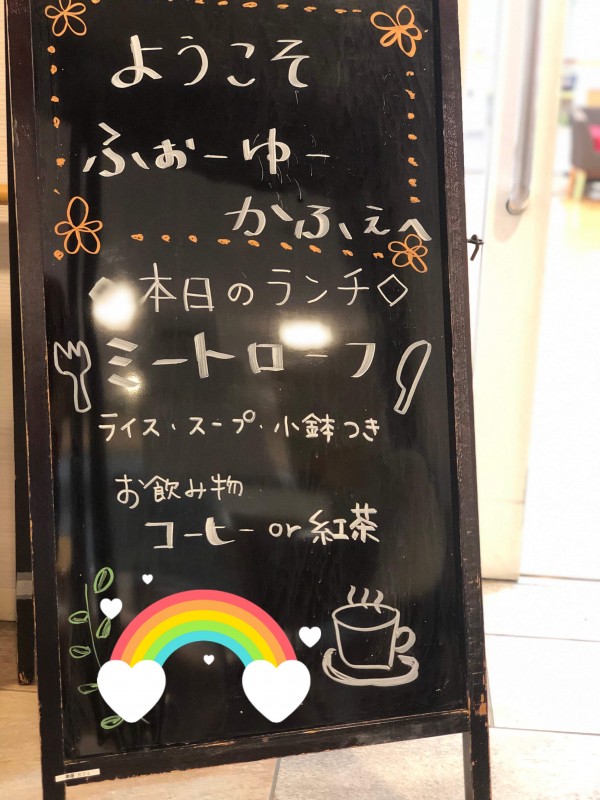 ようこそ
ふぉーゆー
かふぇへ
◇本日のランチ◇
ミートローフ
ライス・スープ・小鉢つき
お飲み物
コーヒー or 紅茶